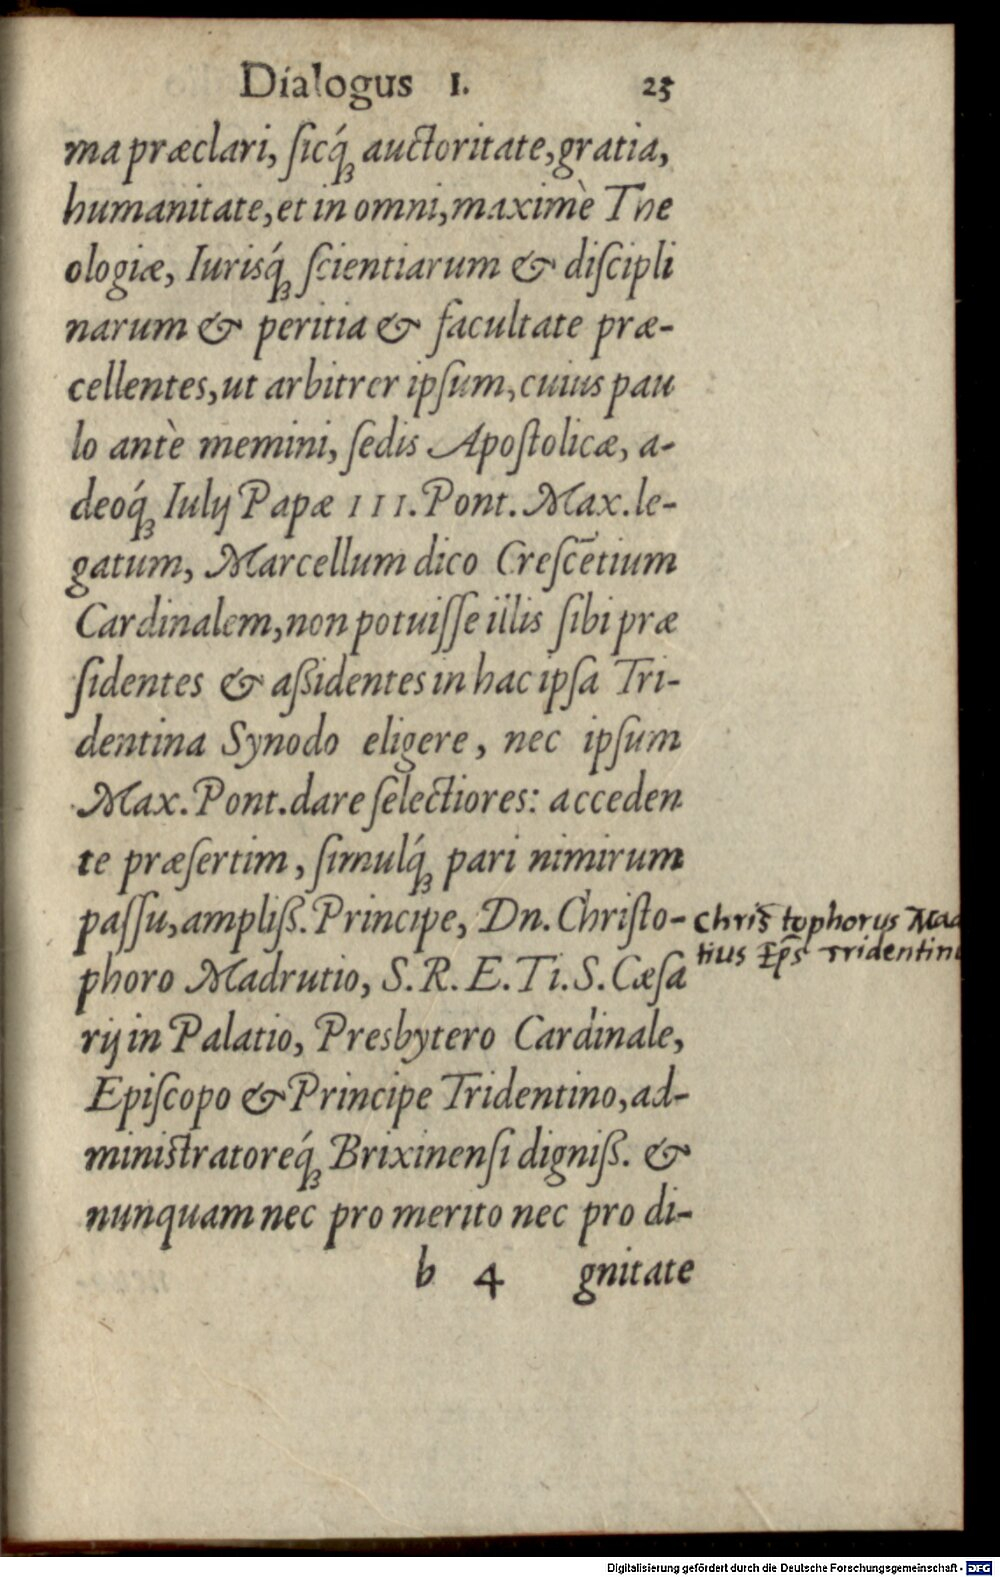 Dialogus I. 25
ma præclari, ſicq́ꝫ auctoritate, gratia,
humanitate, et in omni, maximè The
ologiæ, Iurisq́ꝫ ſcientiarum & diſcipli
narum & peritia & facultate præ-
cellentes, ut arbitrer ipſum, cuius pau
lo antè memini, ſedis Apoſtolicæ, a-
deoq́ꝫ Iulij Papæ III. Pont. Max. le-
gatum, Marcellum dico Creſcētium
Cardinalem, non potuiſſe illis ſibi præ
ſidentes & aßidentes in hac ipſa Tri-
dentina Synodo eligere, nec ipſum
Max. Pont. dare ſelectiores: acceden
te præſertim, ſimulq́ꝫ pari nimirum
paſſu, ampliß. Principe, Dn. Chriſto-
phoro Madrutio, S. R. E. Ti. S. Cæſa
rij in Palatio, Presbytero Cardinale,
Epiſcopo & Principe Tridentino, ad-
miniſtratoreq́ꝫ Brixinenſi digniß. &
nunquam nec pro merito nec pro di-
b 4 gnitate
Christophorus Mad
tius Ep̄s Tridentin
Digitalisierung gefördert durch die Deutsche Forschungsgemeinschaft - DFG